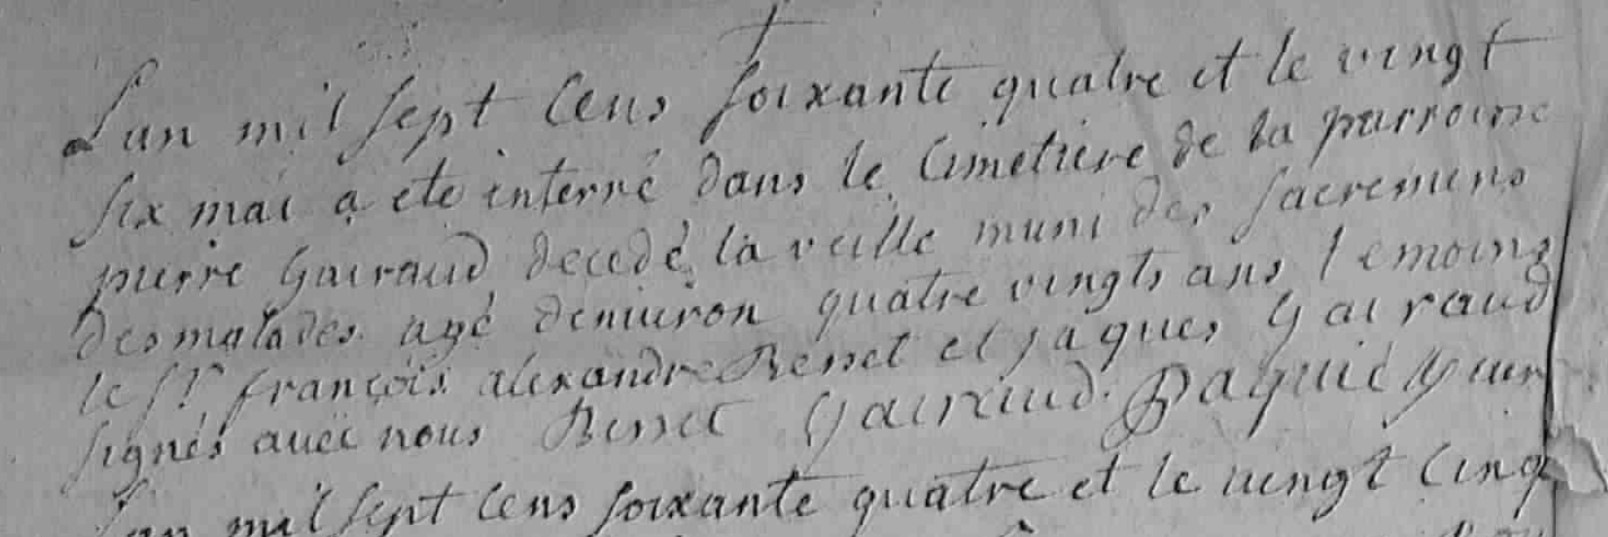 Lan mil sept cens soixante quatre et le vingt
six mai a ete interré dans le Cimetiere de la parroisse
pierre Gairaud decedé la veille muni des sacremens
des malades agé denuiron quatre vingts ans temoins
le Sr. françois alexandre Besset et jaques Gairaud
signés auec nous Besset Gairaud. Paquié
Lan mil sept cens soixante quatre et le uingt cinq